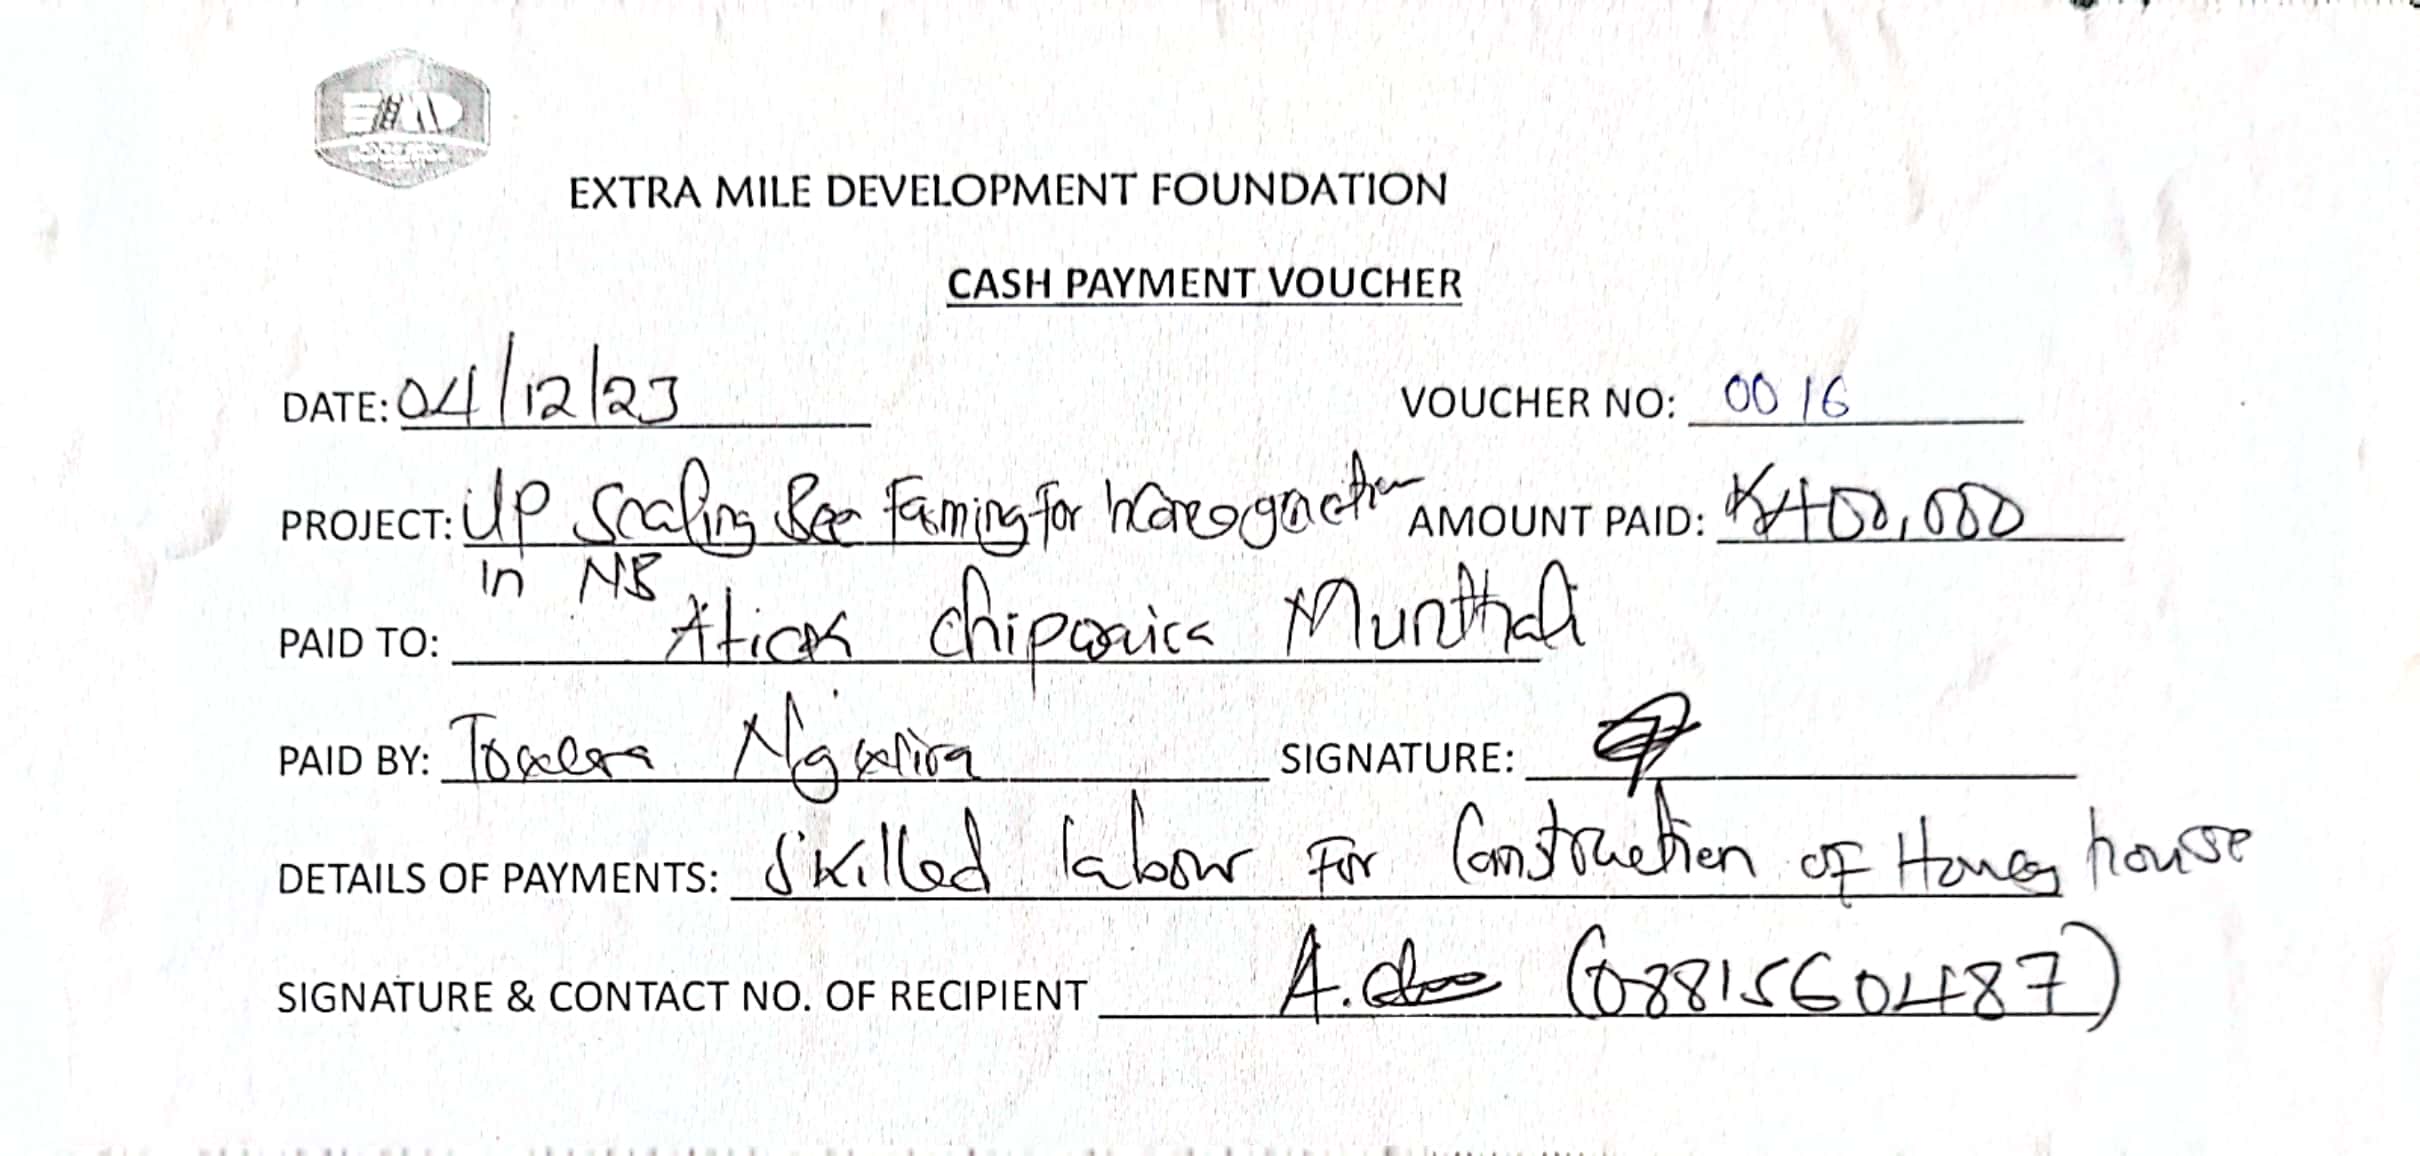 EXTRA MILE DEVELOPMENT FOUNDATION
CASH PAYMENT VOUCHER
DATE: 04/12/23 VOUCHER NO: 0016
PROJECT: Up Scaling Bee Farming for AMOUNT PAID: K400,000
in NB
PAID TO: Munthali
PAID BY: SIGNATURE:
DETAILS OF PAYMENTS: Skilled labour For Construction of Honey house
SIGNATURE & CONTACT NO. OF RECIPIENT A. (0881560487)